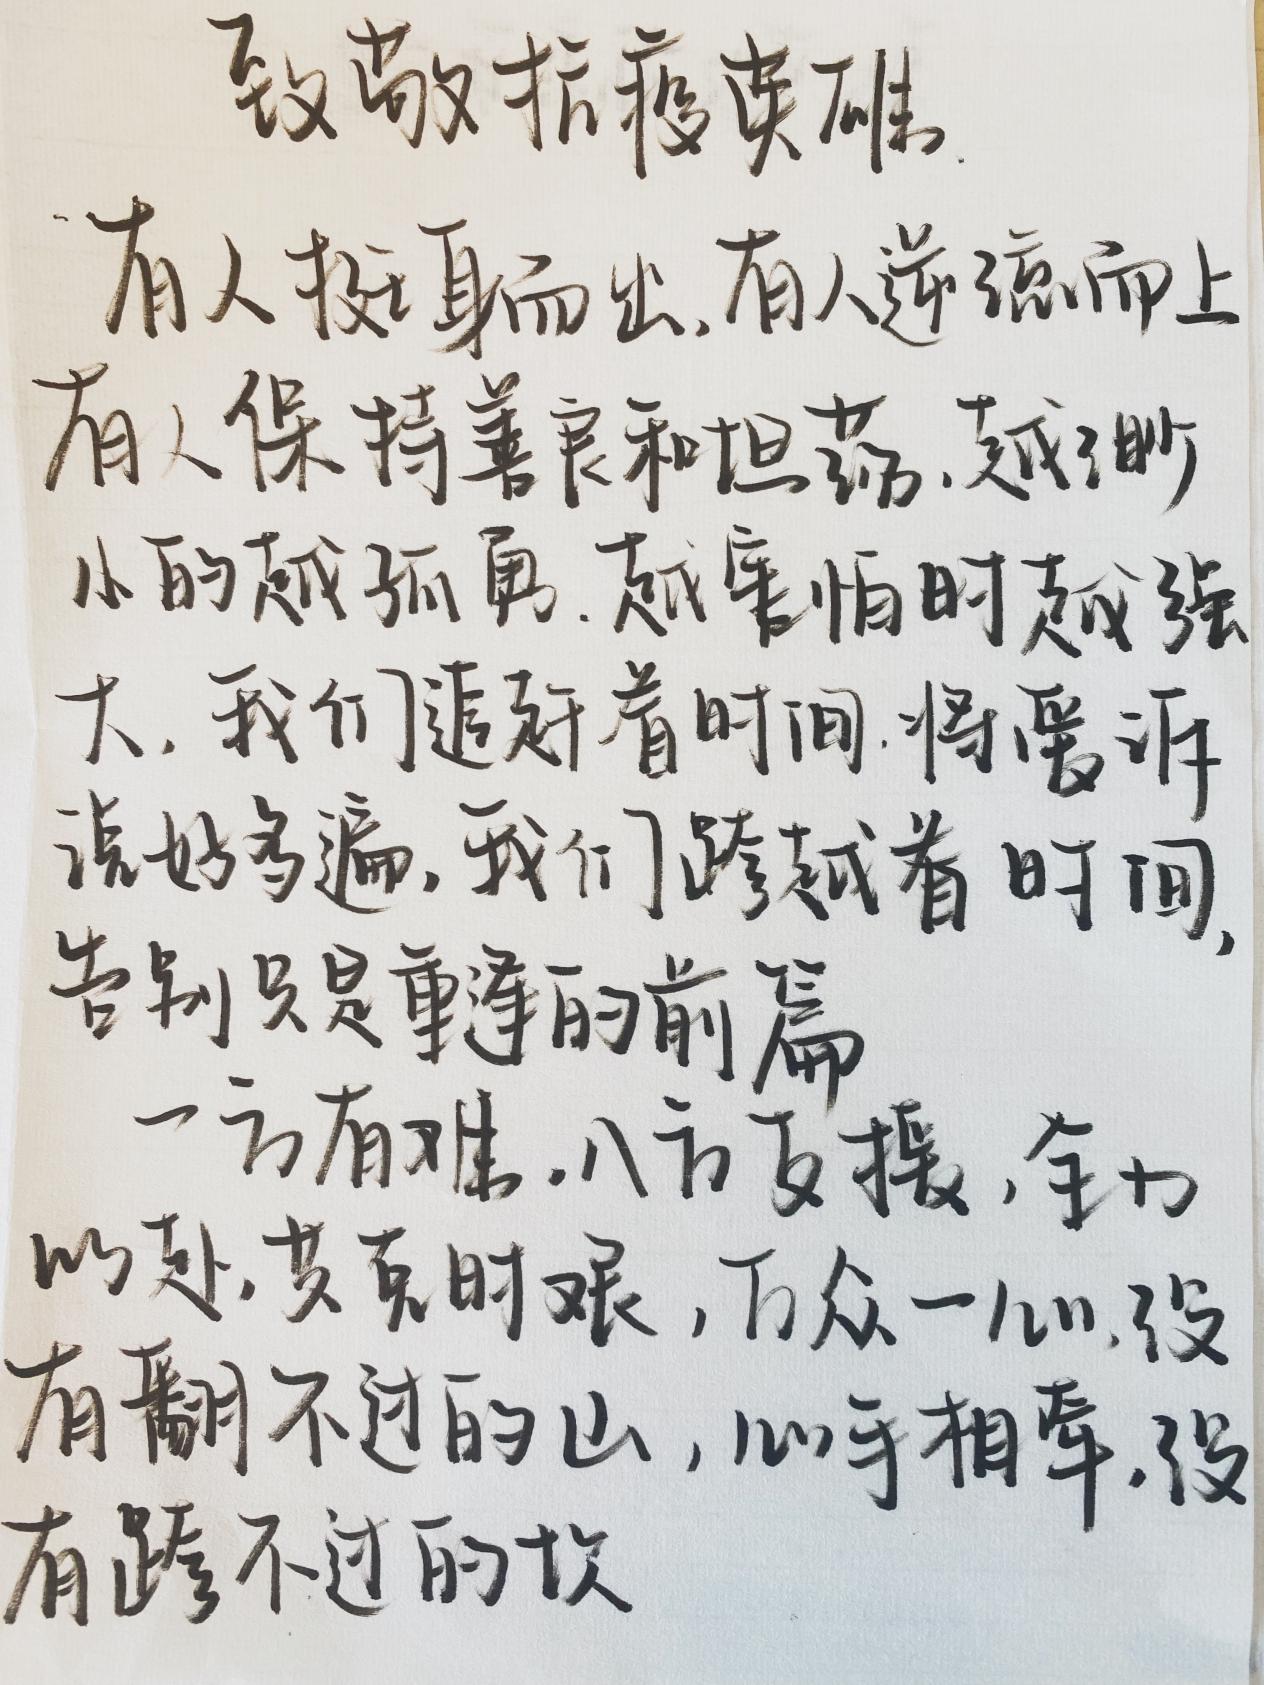 致敬抗疫英雄
有人挺身而出，有人逆流而上
有人保持善良和坦荡，越渺
小的越孤勇，越害怕时越强
大，我们追赶着时间，将爱诉
说好多遍，我们跨越着时间，
告别只是重逢的前篇
一方有难，八方支援，全力
以赴，共克时艰，万众一心，没
有翻不过的山，心手相牵，没
有跨不过的坎